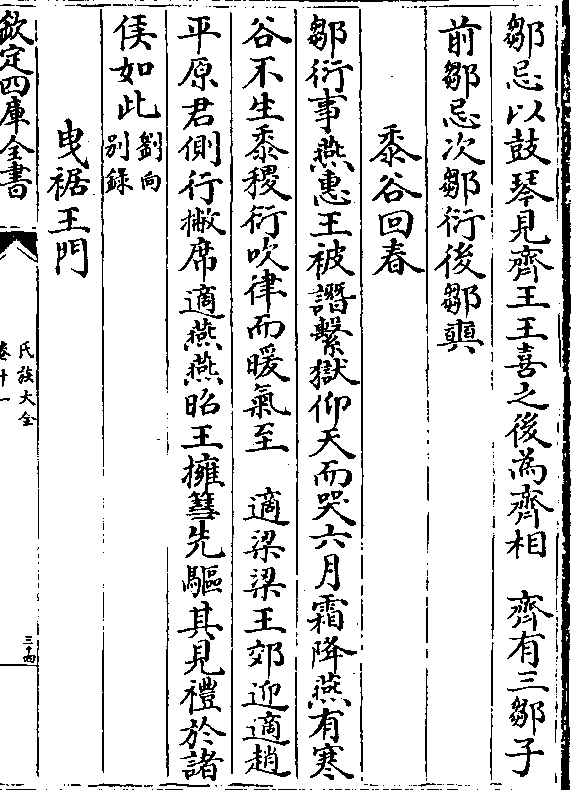 鄒忌以鼓琴見齊王王喜之後為齊相　齊有三鄒子
前鄒忌次鄒衍後鄒奭
黍谷回春
鄒衍事燕惠王被譖繫獄仰天而哭六月霜降燕有寒
谷不生黍稷衍吹律而暖氣至　適梁梁王郊迎適趙
平原君側行撇席適燕燕昭王擁篲先驅其見禮於諸
侯如此劉向
別錄
曳裾王門
欽定四庫全書
氏族大全
卷十一
三十四